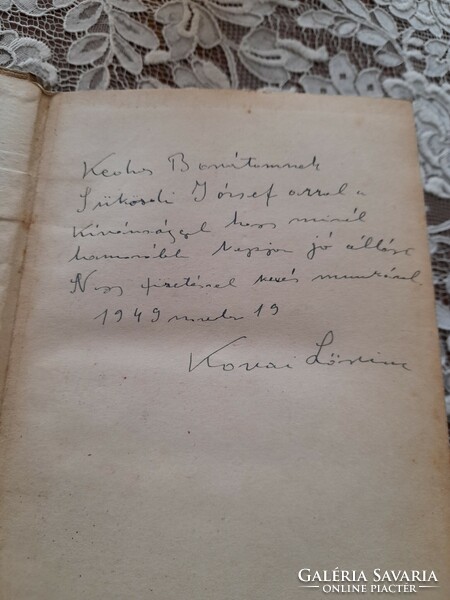 Kedves Barátomnak
Sükösdi József azzal a
Kívánsággal hogy minél
hamarább kapjon jó állást
Nagy fizetéssel kevés munkával
1949 19
Kovai Lőrinc
GALÉRIA SAVARIA
ONLINE PIACTÉR